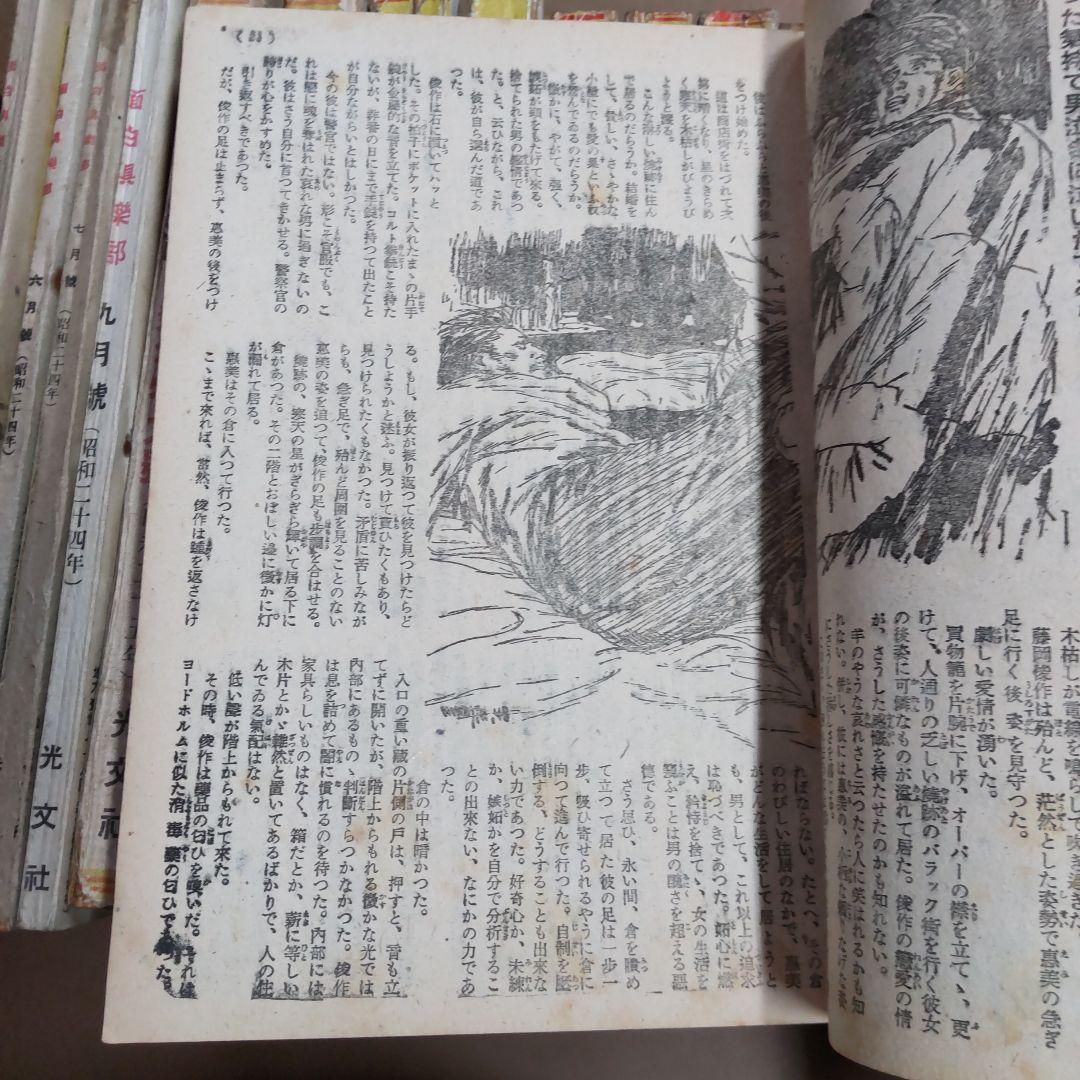 つた氣持で男泣
木枯しが電線を鳴らして吹き過ぎた
藤岡俊作は殆んど、茫然とした姿勢で惠美の急ぎ
足に行く後姿を見守つた。
劇しい愛情が湧いた。
買物籠を片腕に下げ、オーバーの襟を立てゝ、更
けて、人通りの乏しい燒跡のバラック街を行く彼女
の後姿に可憐なものが溢れて居た。俊作の戀愛の情
が、さうした感慨を持たせたのかも知れない。
羊のやうな哀れさと云つたら人に笑はれるかも知
れない。
(23)
をつけ始めた。
道は商店街をはづれて次
第に暗くなり、星のきらめ
く寒天を木枯しがひようひ
ようと渡る。
こんな淋しい燒跡に住ん
で居るのだらうか。結婚を
して、貧しい、さゝやかな
小屋にでも愛の巣といふ奴
を營んでゐるのだらうか。
微かに、やがて、強く、
嫉妬が頭をもたげて來る。
捨てられた男の感情であつ
た。と、云ひながら、これ
は、彼が自ら選んだ道であ
つた。
俊作は石に躓いてハッと
した。その拍子にポケットに入れたまゝの片手
錠が金屬的な音を立てた。コルト拳銃こそ持た
ないが、非番の日にまで手錠を持つて出たこと
が自分ながらいとはしかつた。
今の彼は警官ではない。形こそ官服でも、こ
れは戀に魂を奪はれた哀れな男に過ぎないの
だ。彼はさう自分に言つてきかせる。警察官の
誇りが心をかすめた。
引き返すべきであつた。
だが、俊作の足は止まらず、惠美の後をつけ
る。もし、彼女が振り返つて彼を見つけたらど
うしようかと迷ふ。見つけて貰ひたくもあり、
見つけられたくもなかつた。矛盾に苦しみなが
らも、急ぎ足で、殆んど周圍を見ることのない
惠美の姿を追つて、俊作の足も步調を合はせる。
燒跡の、寒天の星がぎらぎら輝いて居る下に
倉があつた。その二階とおぼしい邊に微かに灯
が漏れて居る。
惠美はその倉に入つて行つた。
こゝまで來れば、當然、俊作は踵を返さなけ
ればならない。たとへ、この倉
のわびしい住居のなかで、惠美
がどんな生活をして居ようと
も、男として、これ以上の追求
は恥づべきであつた。
え、矜持を捨てゝ、女の生活を
窺ふことは男の醜さを超える惡
德である。
さう思ひ、永い間、倉を眺め
て立つて居た彼の足は一步一
步、吸ひ寄せられるやうに倉に
向つて進んで行つた。自制を壓
倒する、どうすることも出來な
い力であつた。好奇心か、未練
か、嫉妬かを自分で分析するこ
との出來ない、なにかの力であ
つた。
倉の中は暗かつた。
入口の重い藏の片側の戶は、押すと、音も立
てずに開いたが、階上からもれる微かな光では
內部にあるものゝ判斷すらつかなかつた。俊作
は息を詰めて闇に慣れるのを待つた。內部には
家具らしいものはなく、箱だとか、薪に等しい
木片とかゞ雜然と置いてあるばかりで、人の住
んでゐる氣配はない。
低い聲が階上からもれて來た。
その時、俊作は藥品の匂ひを嗅いだ。それは
ヨードホルムに似た消毒藥の匂ひであつた。
面白俱樂部
九月號
(昭和二十四年)
光文社
七月號
(昭和二十四年)
六月號
(昭和二十四年)
光文社